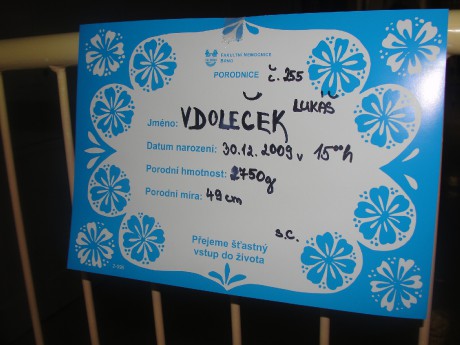 FAKULTNÍ NEMOCNICE
BRNO
PORODNICE č. 255
LUKÁŠ
Jméno: VDOLEČEK
Datum narození: 30.12.2009 v 15⁰⁰h
Porodní hmotnost: 2750g
Porodní míra: 49 cm
s.c.
Přejeme šťastný
vstup do života